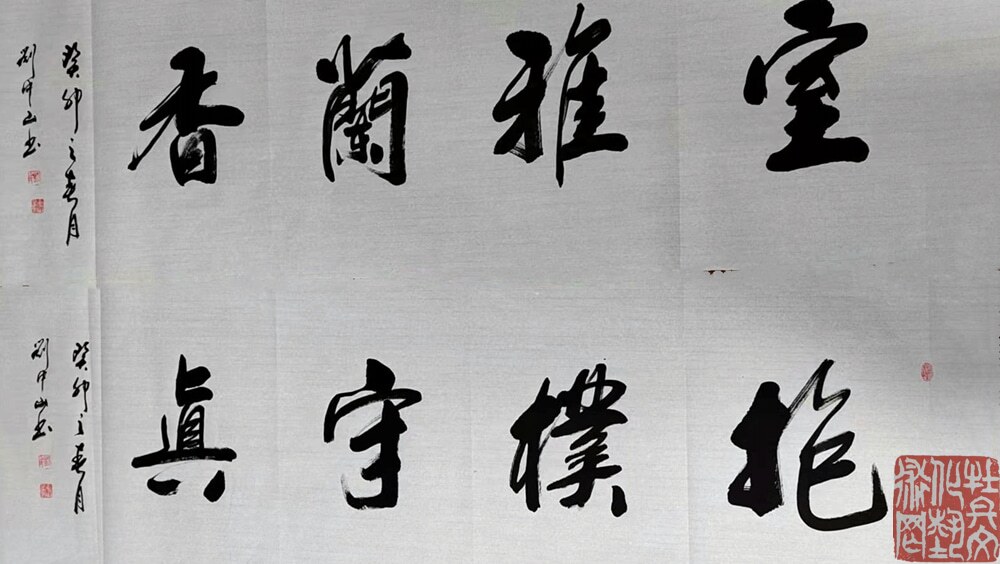 室雅蘭香
癸卯之春月
劉中山书
抱樸守真
癸卯之春月
劉中山书